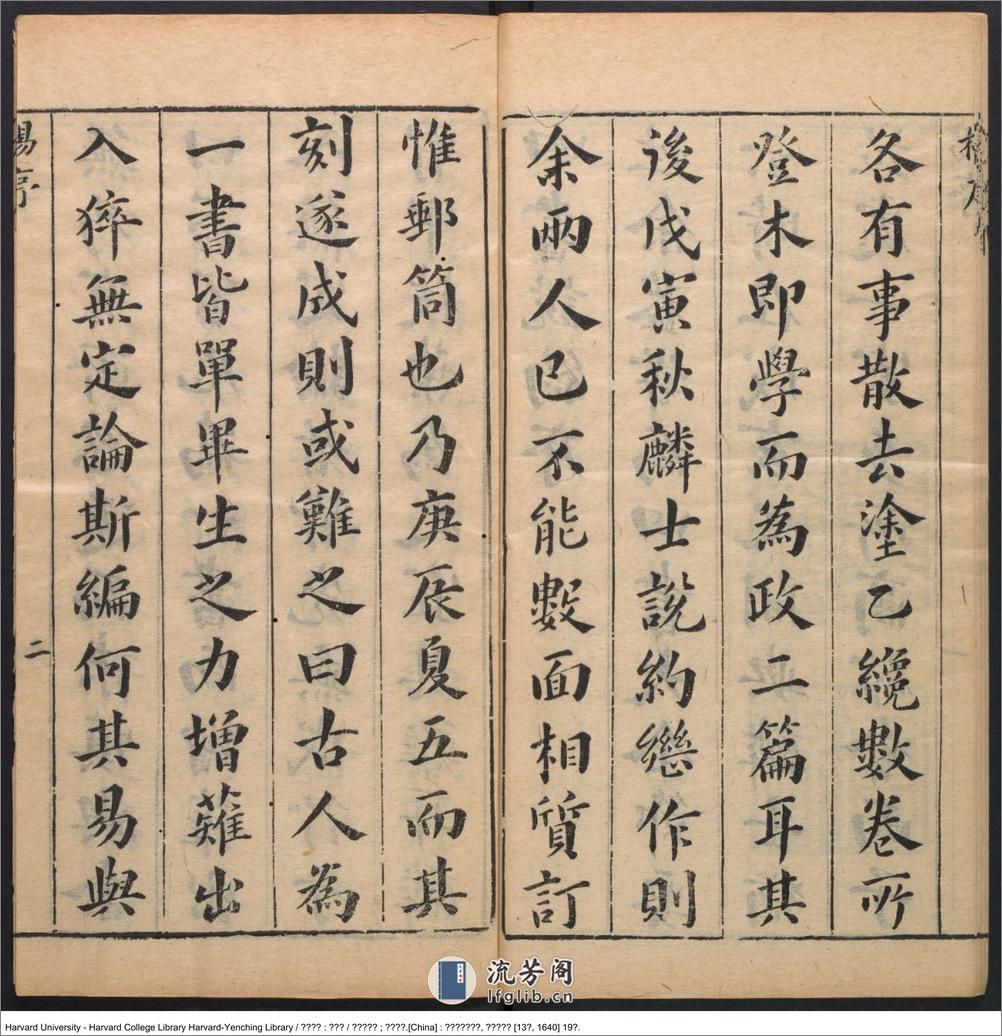 各有事散去塗乙纔數卷所
登木即學而為政二篇耳其
後戊寅秋麟士說約繼作則
余兩人已不能數面相質訂
惟郵筒也乃庚辰夏五而其
刻遂成則或難之曰古人為
一書皆單畢生之力增薙出
入猝無定論斯編何其易與
楊序
二
流芳阁
lfglib.cn
Harvard University - Harvard College Library Harvard-Yenching Library / ???? : ??? / ????? ; ????.[China] : ???????, ????? [13?, 1640] 19?.